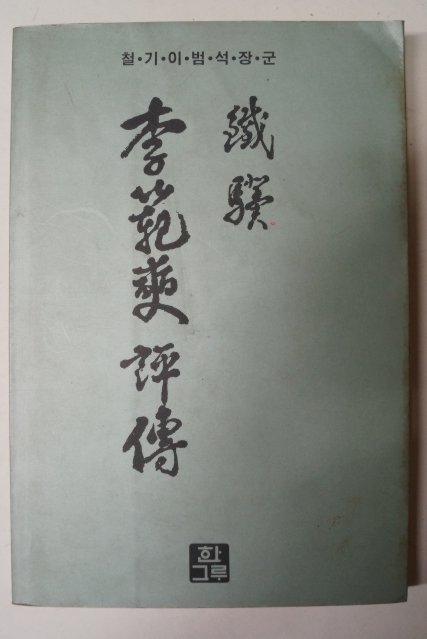 철•기•이•범•석•장•군
鐵驥
李範奭評傳
한
그루